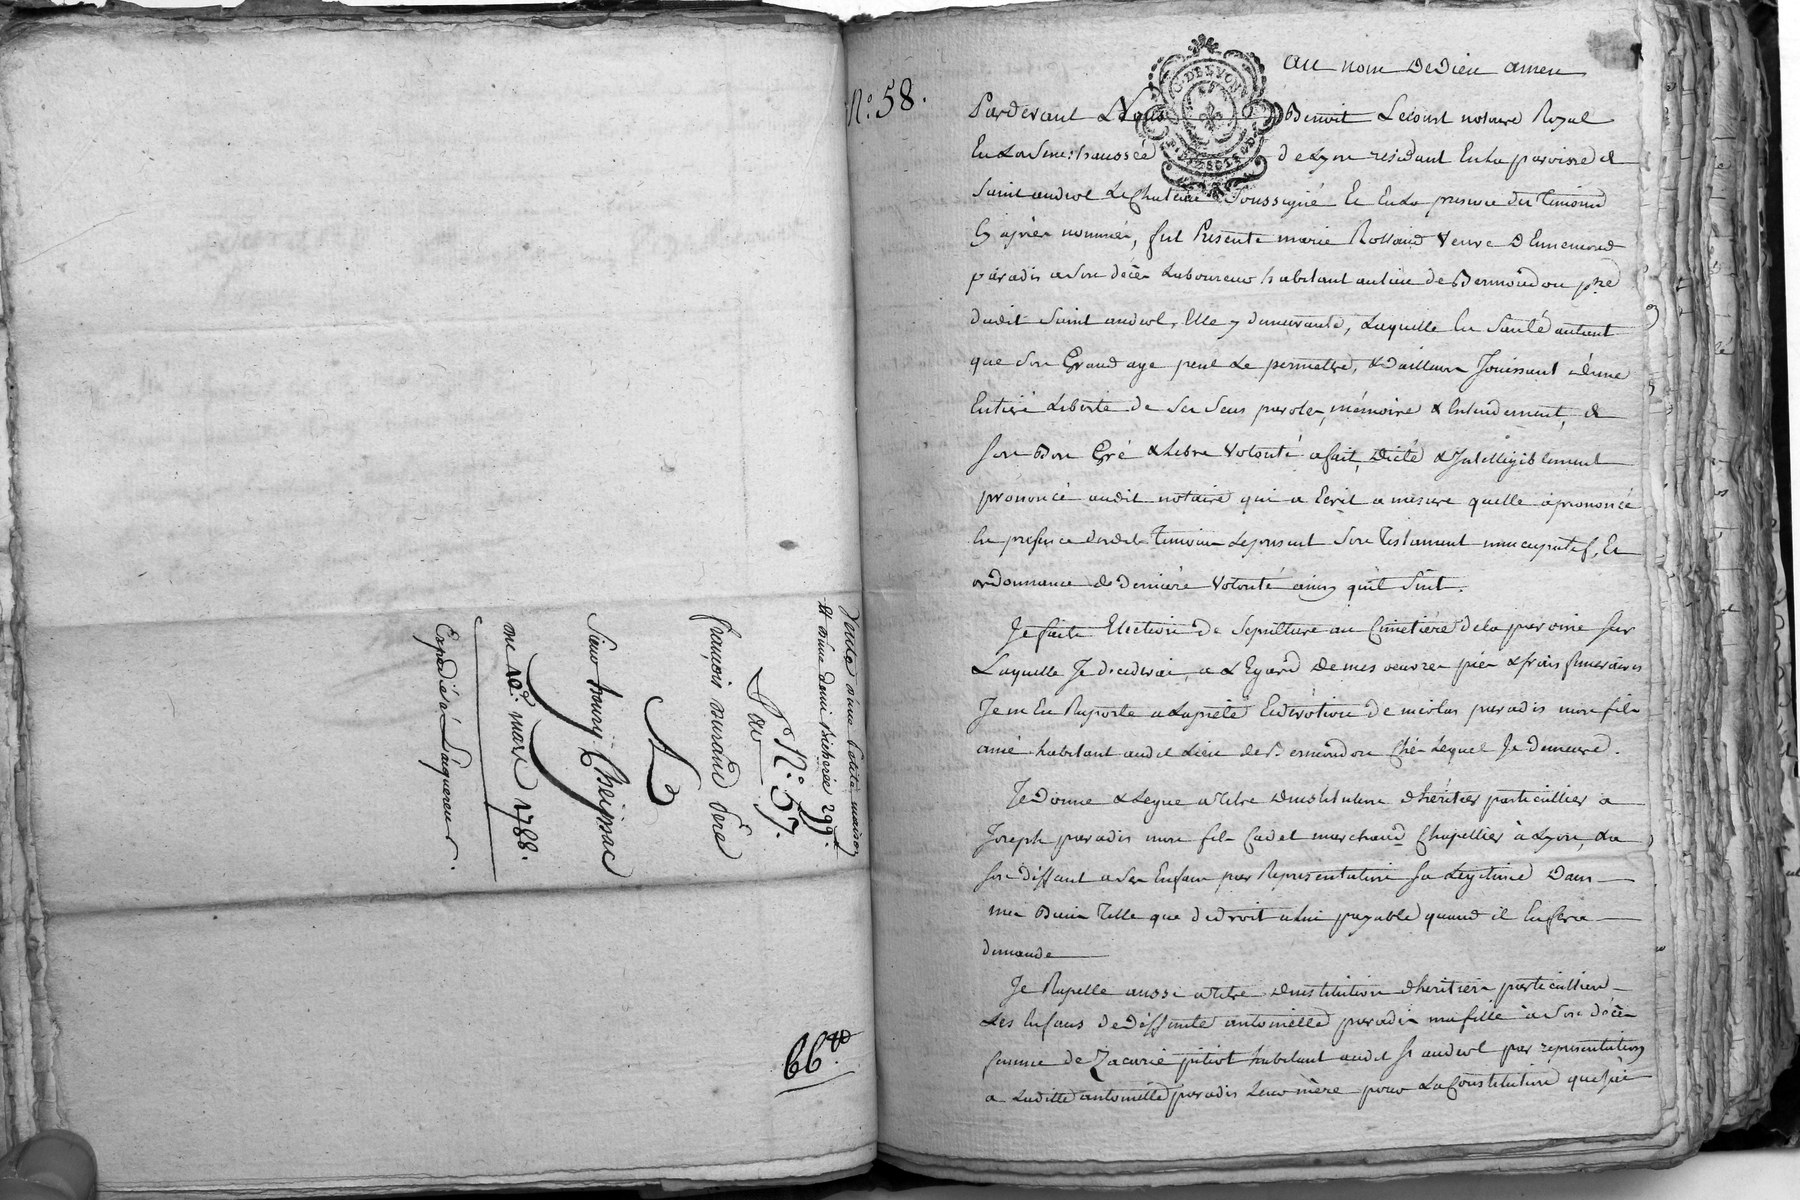 Vente d'une petite maison
et d'une demi Bicherée 299.
N.° 57.
Par
françois durand père
A
Sieur bourg Cheissac
du 10.e mars 1788.
Expedié à L'aquereur.
66.to
N.° 58.
Au nom de Dieu amen
G. DE LYON
Pardevant Nous Benoit Lecourt notaire Royal
En La Senechaussée de Lyon residant En La paroisse de
Saint andeol Le Chateau Soussigné Et En La presence des temoins
Cy après nommés, fut Presente marie Rolland Veuve d'Ennemond
paradis a Son decès Laboureur habitant au lieu de Bermondon psse
dudit Saint andeol, Elle y demeurante, Laquelle En Santé autant
que Son Grand age peut Le permettre, & d'ailleurs Jouissant d'une
Entiere Liberté de Ses Sens parole, mémoire & Entendement, de
Son Bon Gré & Libre Volonté a fait, Dicté & Intelligiblement
prononcé audit notaire qui a Ecrit a mesure quelle a prononcé
En presence desdits temoins Le present Son Testament nuncupatif, Et
ordonnance de derniere Volonté ainsy qu'il Suit.
Je faits Election de Sepulture au Cimetière de la paroisse Sur
Laquelle Je décéderai, a L'Egard de mes oeuvres pies & frais funeraires
Je m'En Raporte a La pieté & devotion de nicolas paradis mon fils
ainé habitant audit Lieu de Bermondon Chés Lequel Je demeure.
Je donne & Legue a titre d'institution d'héritier particuilier a
Joseph paradis mon fils Cadet marchand Chapellier à Lyon, ou a
Son déffaut a Ses Enfans par Representation Sa Légitime Dans
mes Biens Telle que de droit a Lui payable quand il En fera
demande
Je Rapelle aussi a titre d'institution d'heritiers particuiliers
Les Enfans de deffunte antoinette paradis ma fille a Son décès
femme de Zacarie pitiot habitant audit St andeol par representation
a Laditte antoinette paradis Leur mère pour La Constitution que J'ai